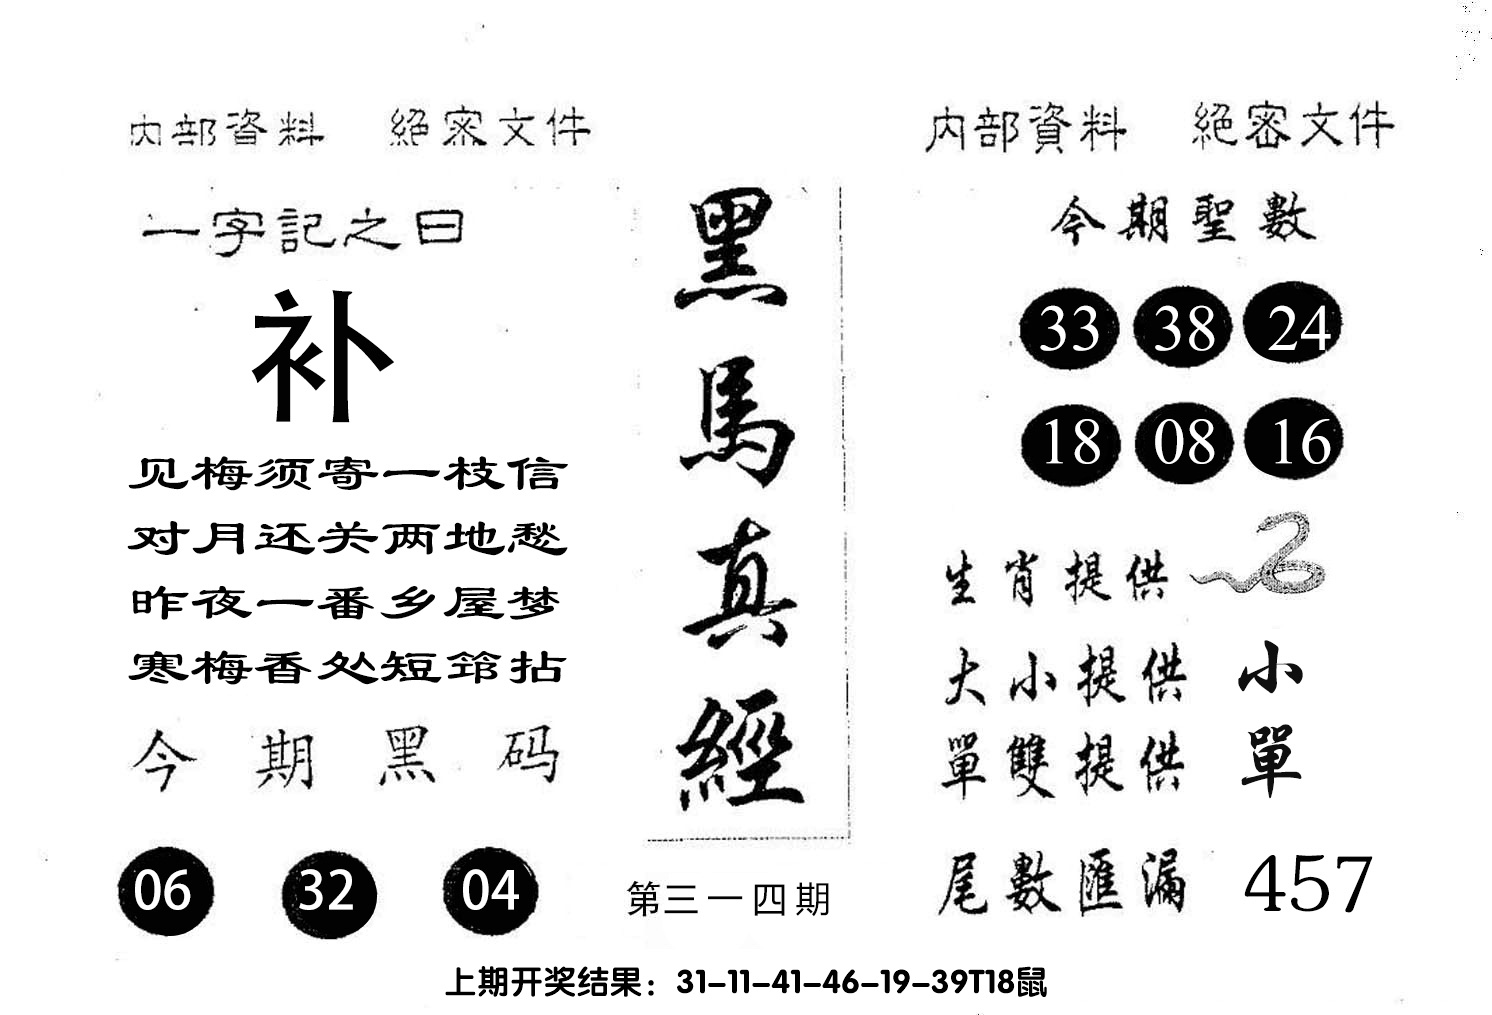 内部資料 絕密文件
一字記之曰
补
见梅须寄一枝信
对月还关两地愁
昨夜一番乡屋梦
寒梅香处短筇拈
今期黑码
06 32 04
黑馬真經
第三一四期
内部資料 絕密文件
今期聖數
33 38 24
18 08 16
生肖提供
大小提供 小
單雙提供 單
尾數匯漏 457
上期开奖结果：31-11-41-46-19-39T18鼠